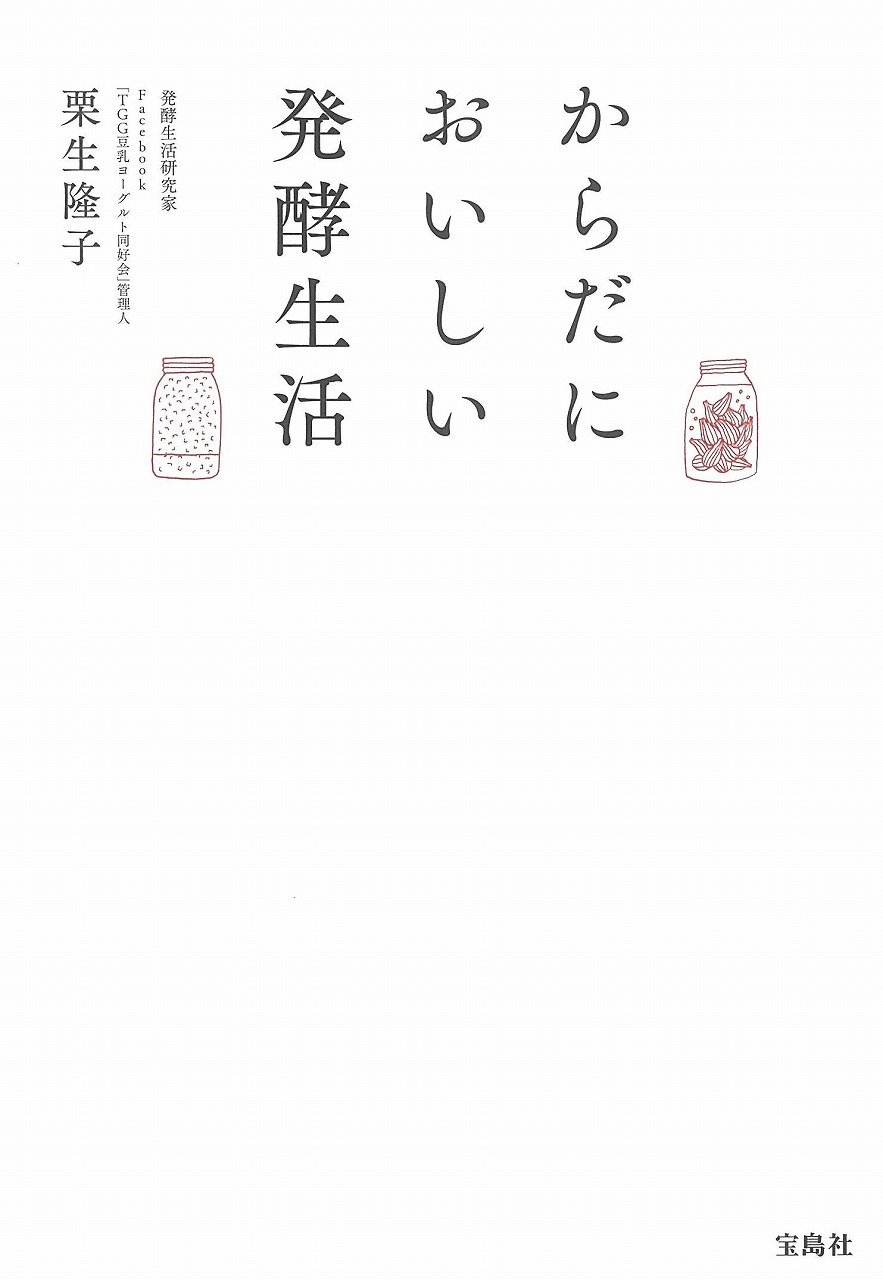 からだに
おいしい
発酵生活
発酵生活研究家
Facebook
「TGG豆乳ヨーグルト同好会」管理人
栗生隆子
宝島社